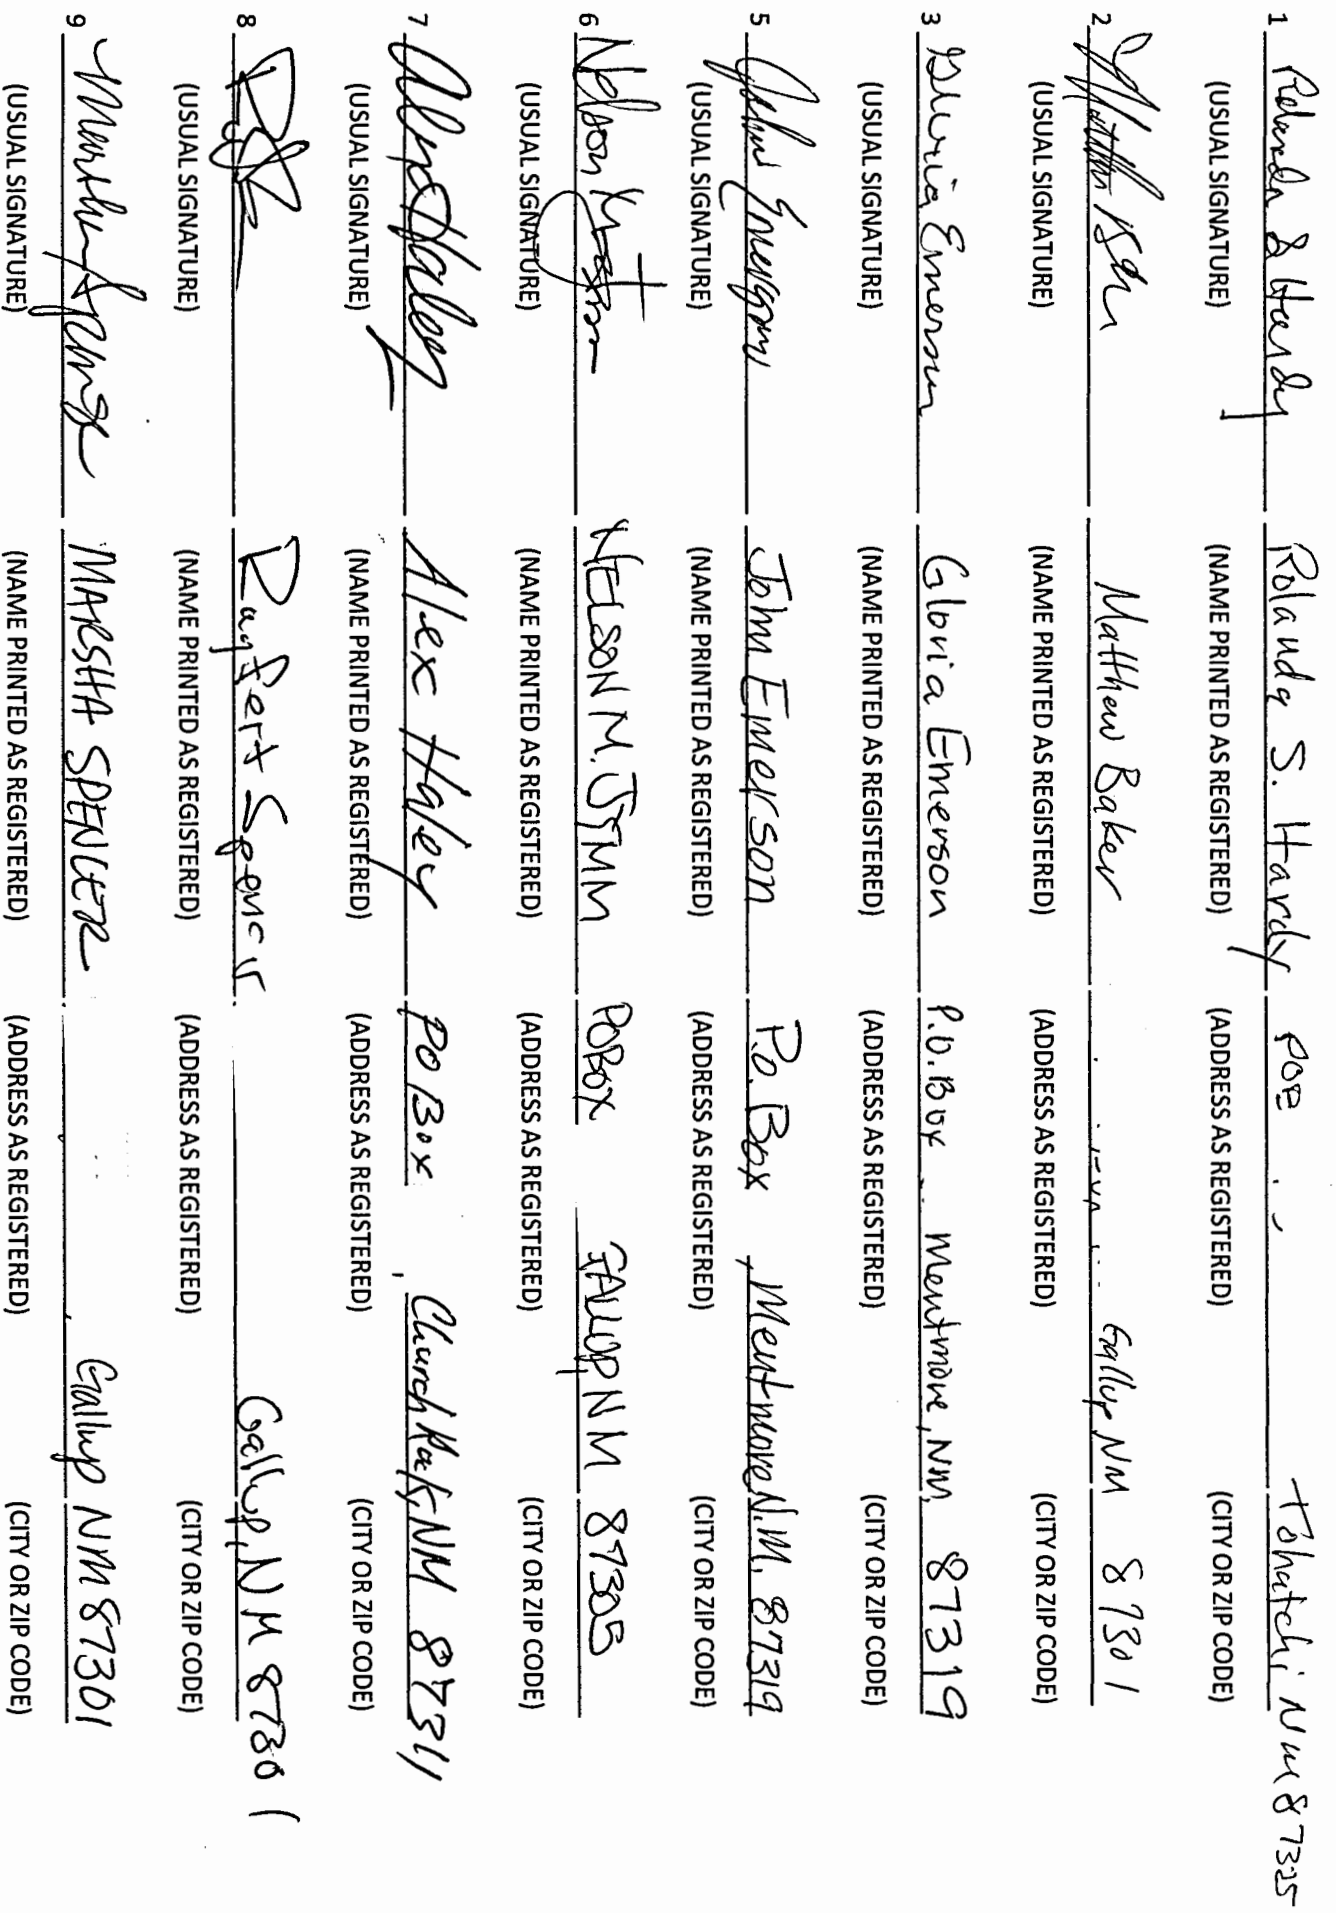 1 Rolanda S Hardy Rolanda S. Hardy POB Tohatchi Nm 87325
(USUAL SIGNATURE) (NAME PRINTED AS REGISTERED) (ADDRESS AS REGISTERED) (CITY OR ZIP CODE)
2 Matthew Baker Gallup, NM 87301
(USUAL SIGNATURE) (NAME PRINTED AS REGISTERED) (ADDRESS AS REGISTERED) (CITY OR ZIP CODE)
3 Gloria Emerson Gloria Emerson P.O. Box Mentmore, Nm. 87319
(USUAL SIGNATURE) (NAME PRINTED AS REGISTERED) (ADDRESS AS REGISTERED) (CITY OR ZIP CODE)
5 John Emerson John Emerson P.O. Box , Mentmore N.M. 87319
(USUAL SIGNATURE) (NAME PRINTED AS REGISTERED) (ADDRESS AS REGISTERED) (CITY OR ZIP CODE)
6 Nelson NELSON M. JYMM POBOX GALLUP NM 87305
(USUAL SIGNATURE) (NAME PRINTED AS REGISTERED) (ADDRESS AS REGISTERED) (CITY OR ZIP CODE)
7 Alex Haley Alex Haley PO Box , Church Rock, NM 87311
(USUAL SIGNATURE) (NAME PRINTED AS REGISTERED) (ADDRESS AS REGISTERED) (CITY OR ZIP CODE)
8 Gallup, NM 87301
(USUAL SIGNATURE) (NAME PRINTED AS REGISTERED) (ADDRESS AS REGISTERED) (CITY OR ZIP CODE)
9 Marsha Spencer MARSHA SPENCER Gallup NM 87301
(USUAL SIGNATURE) (NAME PRINTED AS REGISTERED) (ADDRESS AS REGISTERED) (CITY OR ZIP CODE)